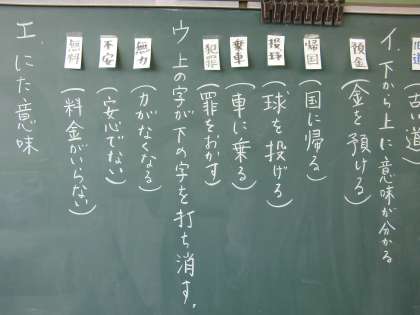 い道)
イ.下から上に意味が分かる
預金(金を預ける)
帰国(国に帰る)
投球(球を投げる)
乗車(車に乗る)
犯罪(罪をおかす)
ウ 上の字が下の字を打ち消す。
無力(力がなくなる)
不安(安心でない)
無料(料金がいらない)
エ.にた意味